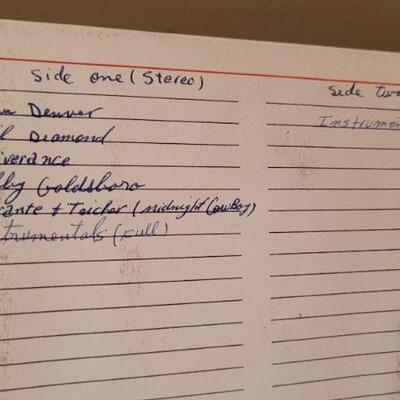 Side one (Stereo)
Denver
Diamond
iverance
Goldsboro
ante & Teicher (midnight CowBoy)
trumentals (Full)
Side two
Instrumen